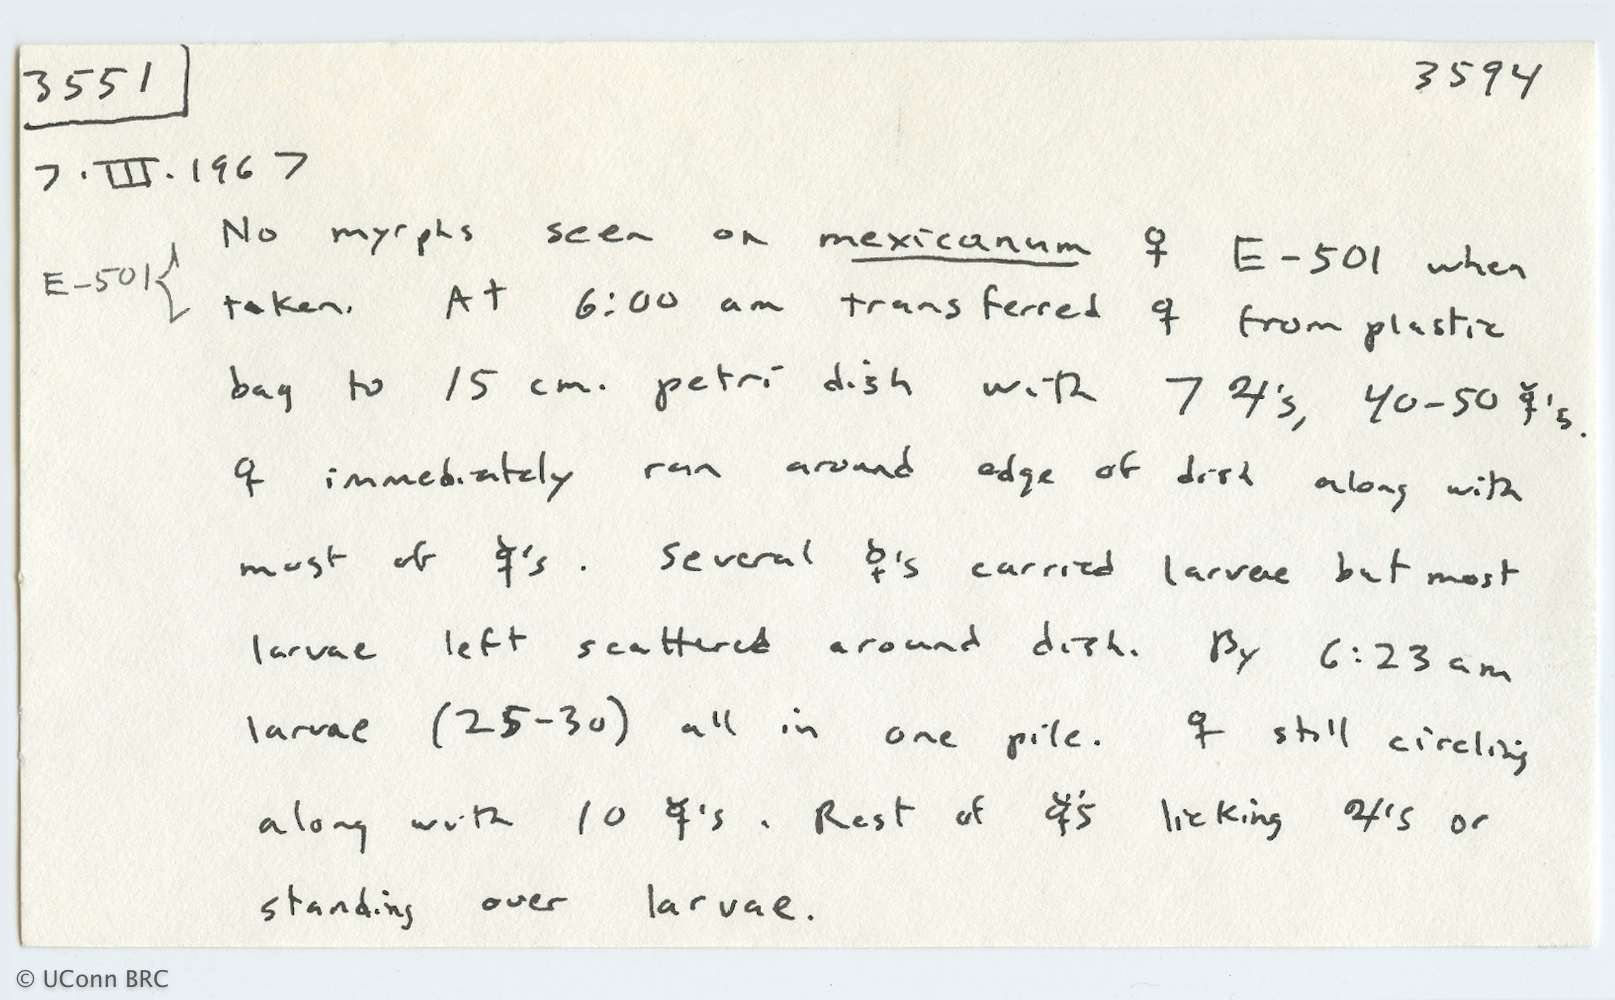 3551
3594
7.III.1967
E-501{
No myrphs seen on mexicanum ♀ E-501 when
taken. At 6:00 am transferred ♀ from plastic
bag to 15 cm. petri dish with 7 ♃'s, 40-50 ☿'s.
♀ immediately ran around edge of dish along with
most of ☿'s. Several ☿'s carried larvae but most
larvae left scattered around dish. By 6:23 am
larvae (25-30) all in one pile. ♀ still circling
along with 10 ☿'s. Rest of ☿'s licking ♃'s or
standing over larvae.
© UConn BRC